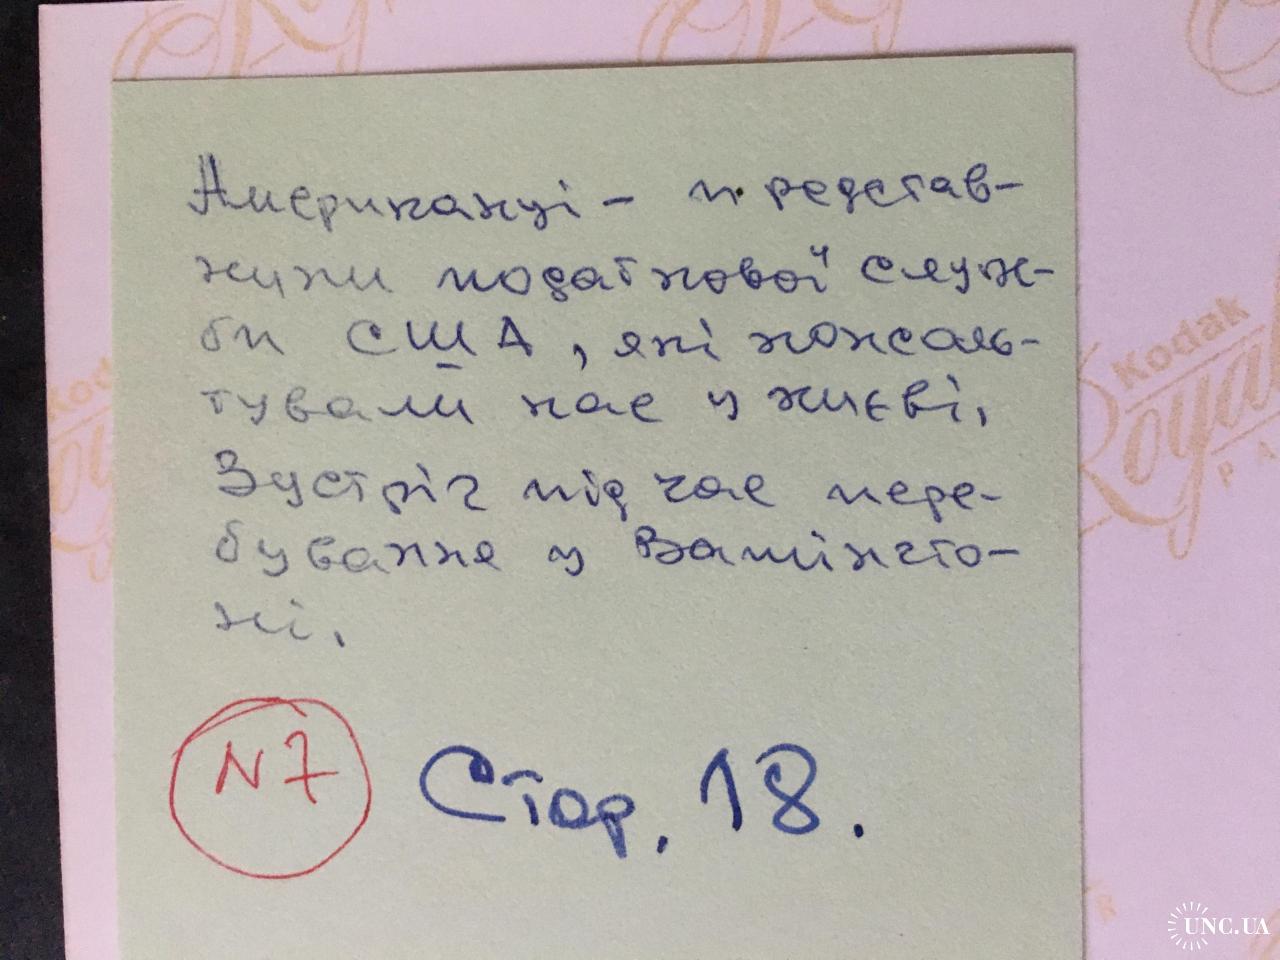 Американці - представ-
ники податкової служ-
би США, які консаль-
тували нас у Києві.
Зустріч під час пере-
бування у Вашінгто-
ні.
N7
Стор. 18.
Kodak
Royal
PA
Kod
UNC.UA